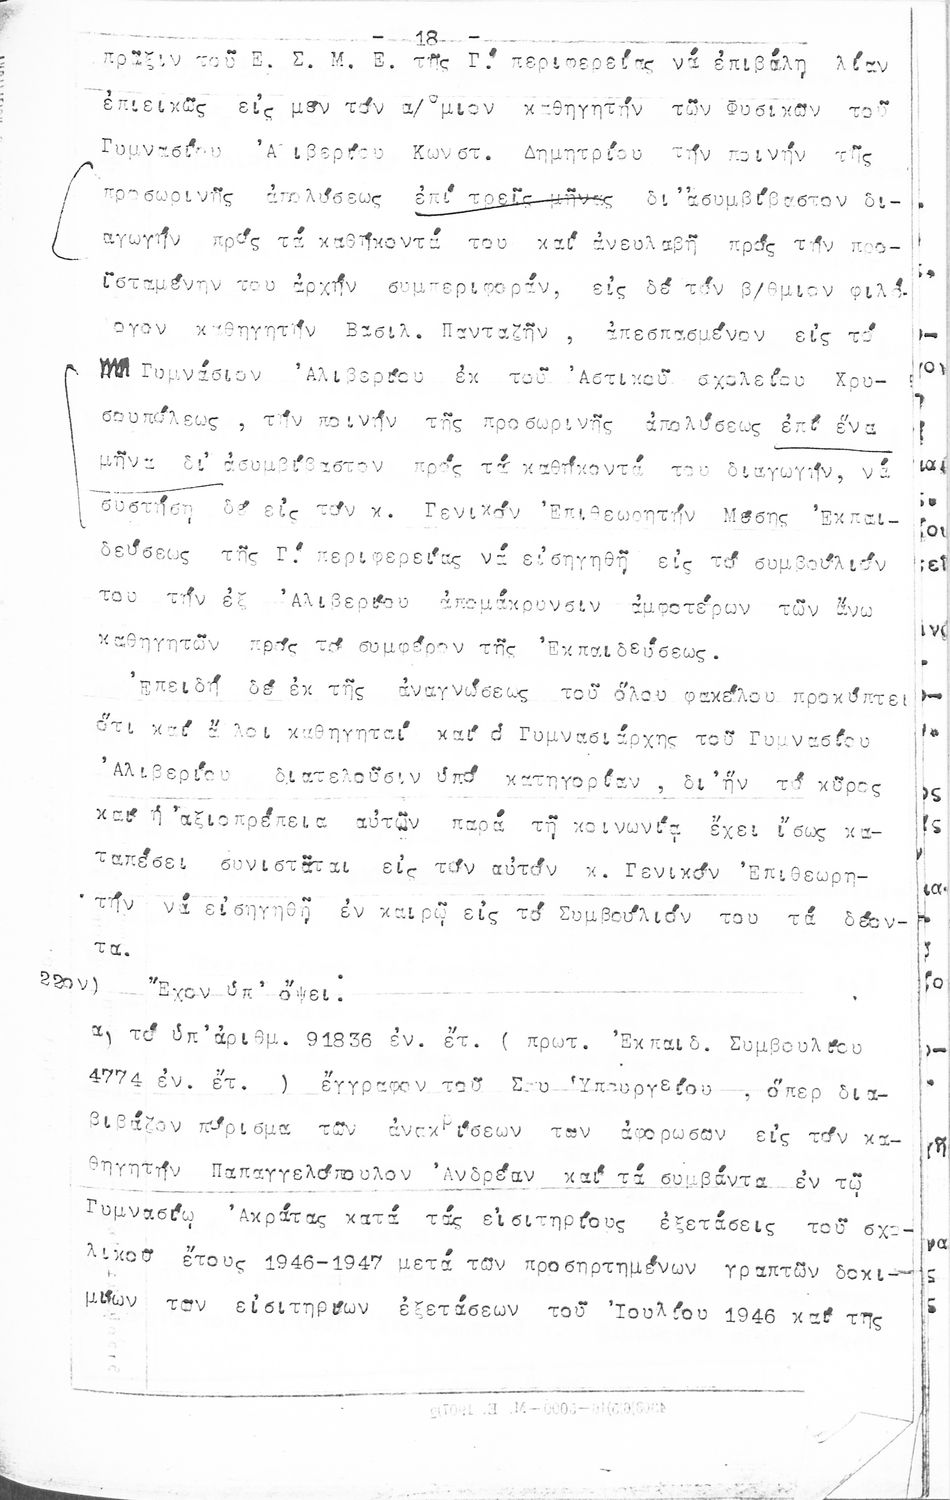 - 18 -
πρᾶξιν τοῦ Ε. Σ. Μ. Ε. τῆς Γ.΄ περιφερείας νά ἐπιβάλη λίαν
ἐπιεικῶς εἰς μεν τόν α/ομιον καθηγητήν τῶν Φυσικῶν τοῦ
Γυμνασίου Ἀλιβερίου Κωνστ. Δημητρίου τήν ποινήν τῆς
προσωρινῆς ἀπολύσεως ἐπί τρεῖς μῆνας δι'ἀσυμβίβαστον δι-
αγωγήν πρός τά καθήκοντά του καί ἀνευλαβῆ πρός τήν προ-
ϊσταμένην του ἀρχήν συμπεριφοράν, εἰς δέ τόν β/θμιον φιλό-
ογον καθηγητήν Βασιλ. Πανταζῆν , ἀπεσπασμένον εἰς τό
Γυμνάσιον Ἀλιβερίου ἐκ τοῦ Ἀστικοῦ σχολείου Χρυ-
σουπόλεως , τήν ποινήν τῆς προσωρινῆς ἀπολύσεως ἐπί ἕνα
μῆνα δι' ἀσυμβίβαστον πρός τά καθήκοντά του διαγωγήν, νά
συστήση δέ εἰς τόν κ. Γενικόν Ἐπιθεωρητήν Μέσης Ἐκπαι-
δεύσεως τῆς Γ.΄ περιφερείας νά εἰσηγηθῆ εἰς τό συμβούλιόν
του τήν ἐξ Ἀλιβερίου ἀπομάκρυνσιν ἀμφοτέρων τῶν ἄνω
καθηγητῶν πρός τό συμφέρον τῆς Ἐκπαιδεύσεως.
Ἐπειδή δέ ἐκ τῆς ἀναγνώσεως τοῦ ὅλου φακέλου προκύπτει
ὅτι καί ἄ λοι καθηγηταί καί ὁ Γυμνασιάρχης τοῦ Γυμνασίου
Ἀλιβερίου διατελοῦσιν ὑπό κατηγορίαν , δι'ἥν τό κῦρος
καί ἡ ἀξιοπρέπεια αὐτῶν παρά τῇ κοινωνίᾳ ἔχει ἴσως κα-
ταπέσει συνιστᾶται εἰς τόν αὐτόν κ. Γενικόν Ἐπιθεωρη-
τήν νά εἰσηγηθῆ ἐν καιρῷ εἰς τό Συμβούλιόν του τά δέον-
τα.
22ον) Ἔχον ὑπ' ὄψει:
α) τό ὑπ'ἀριθμ. 91836 ἐν. ἔτ. ( πρωτ. Ἐκπαιδ. Συμβουλίου
4774 ἐν. ἔτ. ) ἔγγραφον τοῦ Σου Ὑπουργείου , ὅπερ δια-
βιβάζον πόρισμα τῶν ἀνακρίσεων των ἀφορωσῶν εἰς τόν κα-
θηγητήν Παπαγγελόπουλον Ἀνδρέαν καί τά συμβάντα ἐν τῷ
Γυμνασίῳ Ἀκράτας κατά τάς εἰσιτηρίους ἐξετάσεις τοῦ σχο-
λικοῦ ἔτους 1946-1947 μετά τῶν προσηρτημένων γραπτῶν δοκι-
μίων των εἰσιτηρίων ἐξετάσεων τοῦ Ἰουλίου 1946 καί τῆς